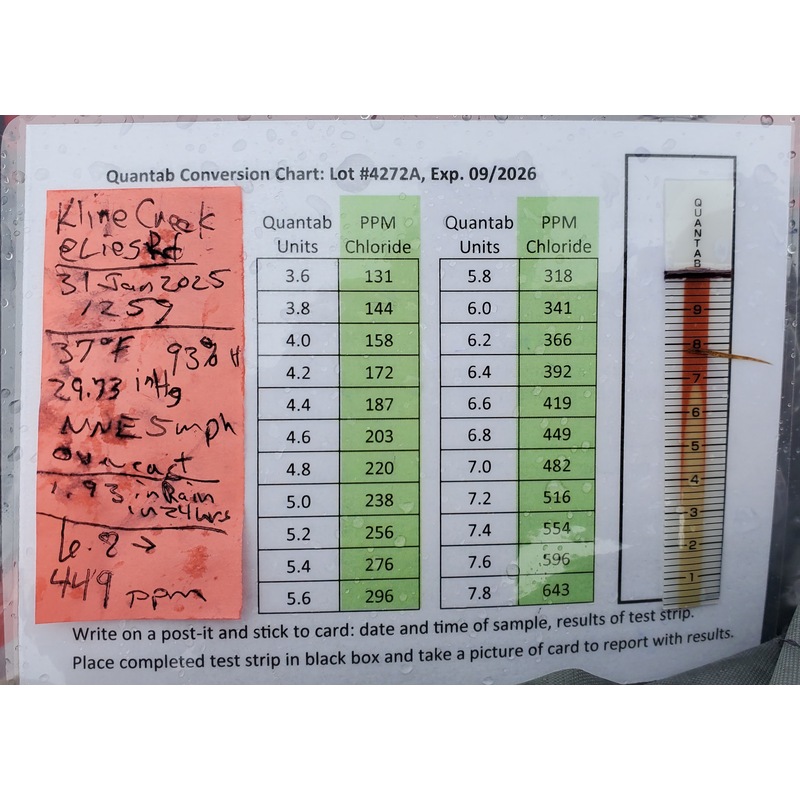 Quantab Conversion Chart: Lot #4272A, Exp. 09/2026
Kline Creek
@Lies Rd
31 Jan 2025
1259
37°F 93% H
29.73 inHg
NNE 5 mph
Overcast
1.93 in Rain
in 24 hrs
6.8 →
449 ppm
Quantab Units PPM Chloride
3.6 131
3.8 144
4.0 158
4.2 172
4.4 187
4.6 203
4.8 220
5.0 238
5.2 256
5.4 276
5.6 296
Quantab Units PPM Chloride
5.8 318
6.0 341
6.2 366
6.4 392
6.6 419
6.8 449
7.0 482
7.2 516
7.4 554
7.6 596
7.8 643
QUANTAB
9
8
7
6
5
4
3
2
1
Write on a post-it and stick to card: date and time of sample, results of test strip.
Place completed test strip in black box and take a picture of card to report with results.